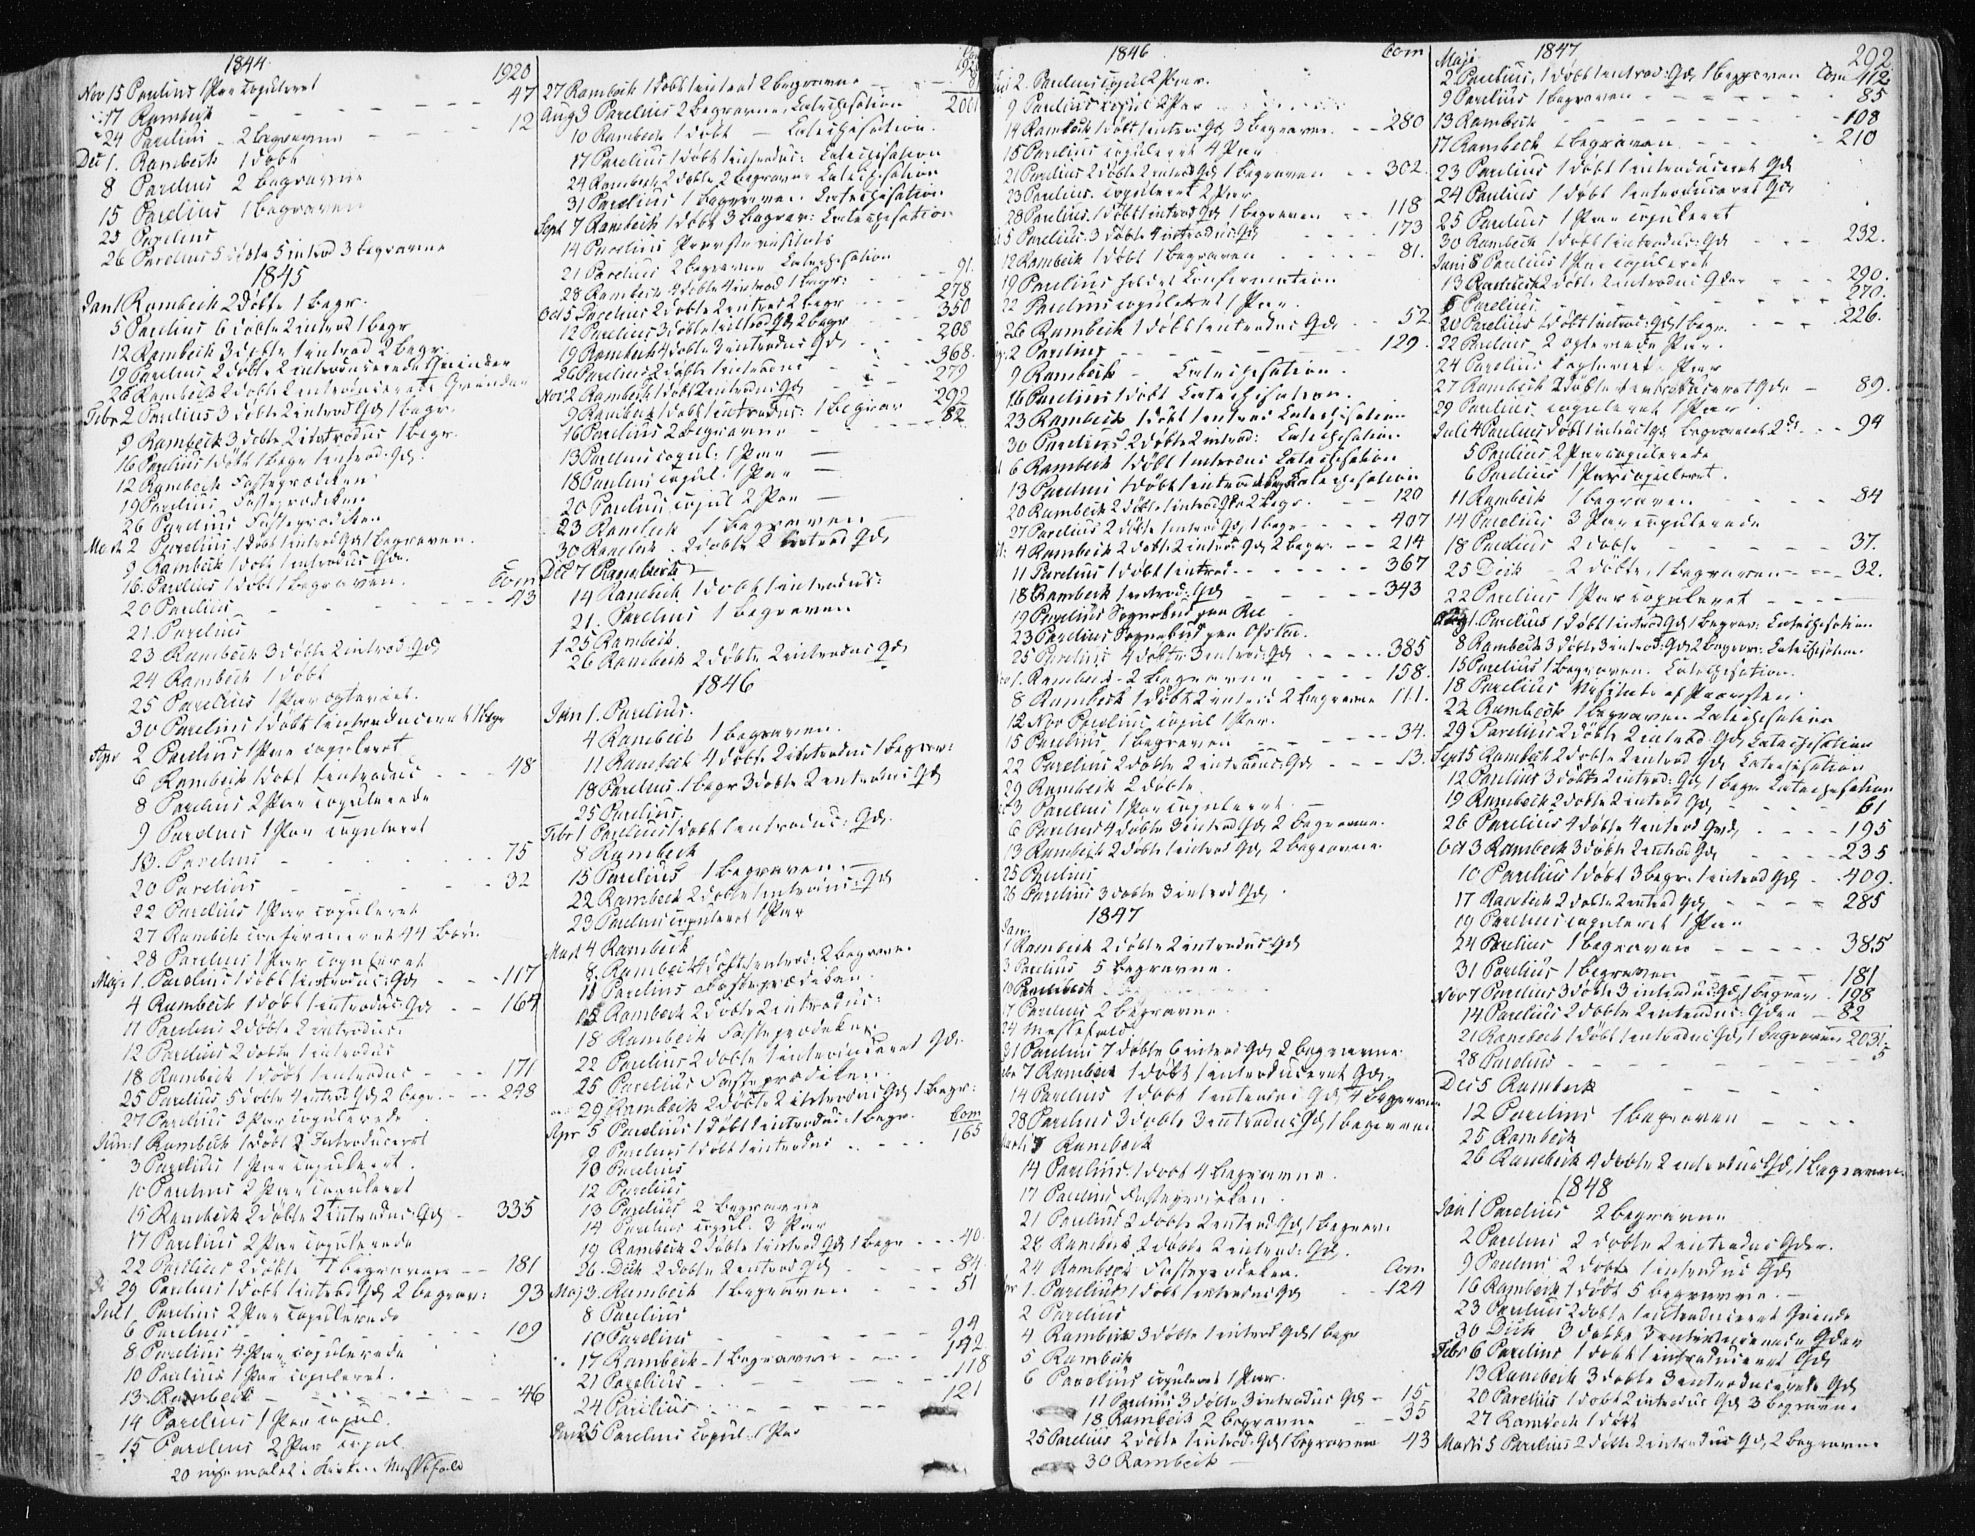 1844
1920
Nov 15 Parelius 1 Par copuleret
17 Rambech - - - - 47
24 Parelius - 2 begravne - - 12
Dec 1. Rambech 1 døbt
8 Parelius 2 begravne
15 Parelius 1 begraven
25 Parelius
26 Parelius 5 døbte 5 introd 3 begravne
1845
Jan 1 Rambech 2 døbte 1 begr.
5 Parelius 6 døbte 2 introd 1 begr
12 Rambech 3 døbte 1 introd 2 Begr
19 Parelius 2 døbte 2 introducerede Qvinder
26 Rambech 2 døbte 2 introducerede Qvinder
Febr 2 Parelius 3 døbte 2 introd Qdr 1 begr.
9 Rambech 3 døbte 2 introdus 1 begr.
16 Parelius 1 døbt 1 begr 1 introd: Qd.
12 Rambech Fasteprædiken
19 Parelius Fasteprædiken
26 Parelius Fasteprædiken
Marti 2 Parelius 1 døbt 1 introd Qd 1 begraven.
9 Rambech 1 døbt 1 introdus Qde.
16 Parelius 1 døbt 1 begraven. Com
20 Parelius - - - - 43
21. Parelius
23 Rambech 3 døbte 2 introd: Qd
24 Rambech 1 døbt
25 Parelius 1 Par copuleret.
30 Parelius 1 døbt 1 introduceret 1 begr
Apr 2 Parelius 1 Par copuleret
6 Rambech 1 døbt 1 introdus - - - 48
8 Parelius 2 Par copulerede
9 Parelius 1 Par copuleret
13. Parelius - - - - 75
20 Parelius - - - - 32
22 Parelius 1 Par copuleret
27 Rambech confirmeret 44 Børn
28 Parelius 1 Par copuleret
Maj 1. Parelius 1 døbt 1 introdus: Qd - - 117
4 Rambech 1 døbt 1 introdus: Qd - - 164
11 Parelius 2 døbte 2 introdus:
12 Parelius 2 døbte 1 introdus
18 Rambech 1 døbt 1 introdus - - - 171
25 Parelius 5 døbte 4 introd Qd 2 begr. - - 248
27 Parelius 3 Par copulerede
Juni 1 Rambech 1 døbt 2 Introduceret
3 Parelius 1 Par copuleret.
10 Parelius 2 Par copuleret
15 Rambech 2 døbte 2 introdus: Qd - 335
17 Parelius 2 Par copulerede
22 Parelius 2 døbte 1 begraven - - 181
29 Parelius 1 døbt 1 introd Qd 2 begrav: 93
Juli 1 Parelius 2 Par copulerede
6 Parelius - - - - 109
8 Parelius 4 Par copulerede
10 Parelius 1 Par copuleret.
13 Rambech - - - - 46
14 Parelius 1 Par copul.
15 Parelius 2 Par copul
20 Messefald
27 Rambech 1 døbt 1 introd 2 begravne
Aug 3 Parelius 2 Begravne. Catechisation
10 Rambech 1 døbt - Catechisation.
17 Parelius 1 døbt 1 introdus: Catechisation
24 Rambech 2 døbte 2 begravne Catechisation
31 Parelius 1 Begraven. Catechisation
Sept 7 Rambech 1 døbt 3 begrav: Catechisation
14 Parelius
21 Parelius 2 begravne Catechisation
28 Rambech 4 døbte 4 introd 1 begr: - - 91.
Oct 5 Parelius 2 døbte 2 introd 2 begr - - 278
12 Parelius 3 døbte 1 introd Qd 2 begr - - 350
19 Rambech 4 døbte 3 introdus Qd - - 208
26 Parelius 2 døbte 1 introdus - - 368.
Nov 2 Rambech 1 døbt 2 introdus: Qd - - 279
9 Rambech 1 døbt 1 introdus: 1 begrav - - 292
16 Parelius 2 begravne - - - 82
13 Parelius copul: 1 Par
18 Parelius copul: 1 Par
20 Parelius copul 2 Par
23 Rambech 1 begraven
30 Rambech 2 døbte 2 introd Qd
Dec 7 Rambech
14 Rambech 1 døbt 1 introdus:
21. Parelius 1 begraven
25 Rambech
26 Rambech 2 døbte 2 introdus Qd
1846
Jan 1. Parelius.
4 Rambech 1 begraven.
11 Rambech 4 døbte 2 introdus 1 begrav:
18 Parelius 1 begr 3 døbte 2 introdus Qd
25 Parelius.
Febr 1 Parelius 1 døbt 1 introdus: Qd.
8 Rambech
15 Parelius 1 begraven
22 Rambech 2 døbte 1 introdus: Qd
23 Parelius copuleret 1 Par
Mart 4 Rambech
8. Rambech 1 døbt 1 introd: 2 begravne
11 Parelius Fasteprædiken.
15 Rambech 2 døbte 2 introdus:
18 Rambech Fasteprædiken
22 Parelius 2 døbte 1 introduceret Qd.
25 Parelius Fasteprædiken.
29 Rambech 2 døbte 2 introdus Qd 1 begr:
Apr 5 Parelius 1 døbt 1 introdus 1 begr. Com
9 Parelius 1 døbt 1 introdus - - 165
10 Parelius
12 Parelius
13 Parelius 2 begravne
14 Parelius copul. 3 Par
19 Rambech 2 døbte 1 introd Qd 1 begr - - 40.
26. Dick 2 døbte 2 introd Qd - - 84.
Maj 3. Rambech 1 begraven - - 51
8 Parelius
10 Parelius - - - 94
17 Rambech - 1 begraven - - 142
21 Parelius - - - 118
24 Parilius - - - 121
25 Parelius copul: 1 Par
1846 Com
2. Parelius copul 2 Par.
9 Parelius copul 2 Par
14 Rambech 1 døbt 1 introd Qd 3 begravne. - - 280
15 Parelius copuleret 4 Par
21 Parelius 2 døbte 2 introd Qd 1 begraven - - 302.
23 Parelius. copuleret 2 Par
28 Parelius. 1 døbt 1 introd Qd 1 begraven - - 118
5 Parelius. 3 døbte 4 introdus: Qd - - 173
12 Rambech 1 døbt 1 begraven - - 81.
19 Parelius holdt Confirmation
22 Parelius copuleret 1 Par
26 Rambech 1 døbt 1 introdus Qd. - 52
2 Parelius - - - 129
9 Rambech - Catechisation.
16 Parelius 1 døbt Catechisation.
23 Rambech 1 døbt 1 introd Catechisation
30 Parelius 2 døbte 2 introd: Catechisation
6 Rambech 1 døbt 1 introdus Catechisation
13 Parelius 1 døbt 1 introd Catechisation
20 Rambech 2 døbte 1 introd Qd 2 begr. - - 120
27 Parelius 2 døbte 1 introd Qd 1 begr - - 407
4 Rambech 2 døbte 2 introd: Qd 2 begr. - - 214
11 Parelius 1 døbt 1 introd - - - 367
18 Rambech 1 introd: Qd - - 343
19 Parelius Sognebud paa
23 Parelius Sognebud paa
25 Parelius 4 døbte 3 introd: Qd - - - 385
1. Rambech - 2 begravne - - - 158.
8 Rambech 1 døbt 2 introd 2 begravne 111.
12 Nov Parelius copul 1 Par.
15 Parelius, 1 begraven - - - 34.
22 Parelius 2 døbte 2 introdus: Qd - - - 13.
29 Rambech 2 døbte.
3 Parelius 1 Par copuleret. -
6 Parelius 4 døbte 3 introd Qd 2 begravne.
13 Rambech 2 døbte 1 introd Qd 2 begravne.
25 Parelius
26 Parelius 3 døbte 3 introd Qd.
1847
Jan:
1 Rambech 2 døbte 2 introdus Qd
3 Parelius 5 begravne.
10 Rambech
17 Parelius 2 begravne.
24 Messefald.
31 Parelius 7 døbte 6 introd Qd 2 begravne
7 Rambech 1 døbt 1 introduceret Qd.
14 Parelius 1 døbt 1 introdus Qd, 4 begravne
28 Parelius 3 døbte 3 introdus Qd 1 begraven
7 Rambech
14 Parelius. 1 døbt 4 begravne.
17 Parelius Fasteprædiken.
21 Parelius 2 døbte 2 introd Qd 1 begrav:
28 Rambech 2 døbte 2 introd: Qd.
24 Rambech Fasteprædiken. Com
1. Parelius 1 døbt 1 introdus Qd - - 124
2 Parelius
4 Rambech 3 døbte 1 introd Qd 1 begr
5 Rambech
6 Parelius copuleret 1 Par.
11 Parelius 3 døbte 3 introdus Qd - 15
18 Rambech 2 begravne - - 35
25 Parelius 2 døbte 1 introd: Qd 1 begraven 43
30 Rambech -
Maji 1847 202
2 Parelius. 1 døbt 1 introd: Qd 1 begraven Com 112
9 Parelius 1 begraven - - - 85
13 Rambech - - - 108
17 Rambech 1 begraven - - - 210
23 Parelius 1 døbt 1 introduceret Qd
24 Parelius 1 døbt 1 introduceret Qd
25 Parelius 1 Par copuleret
30 Rambech 1 døbt 1 introdus: Qd - - - 232.
Juni 8 Parelius 1 Par copuleret
13 Rambech 2 døbte 2 introdus Qder - - - 290.
Parelius. - - - 270.
20 Parelius 1 døbt 1 introd: Qd 1 begr. - - - 226.
22 Parelius 2 copulerede Par.
24 Parelius copuleret 1 Par
27 Rambech 2 døbte 1 introduceret Qde - 89.
29 Parelius copuleret 1 Par
Juli 4 Parelius 1 døbt 1 introd Qd begravet 2de - - 94
5 Parelius 2 Par copulerede
6 Parelius 1 Par copuleret.
11 Rambech 1 begraven - - - 84
14 Parelius 3 Par copulerede
18 Parelius 2 døbte - - - 37.
25 Dick - 2 døbte, 1 begraven - - 32.
22 Parelius 1 Par copuleret - - -
Aug 1. Parelius 1 døbt 1 introd Qd 1 begrav: Catechisation
8 Rambech 3 døbte 3 introd: Qd 2 begrav: Catechisation.
15 Parelius 1 begraven. Catechisation.
18 Parelius Visitats af Provsten.
22 Rambech 1 begraven Catechisation
29 Parelius 2 døbte 2 introd: Qd Catechisation
Sept 5 Rambech 2 døbte 2 introd Qd Catechisation
12 Parelius 3 døbte 2 introd: Qd 1 begr Catechisation
19 Rambech 2 døbte 2 introd Qd - - - 61
26 Parelius 4 døbte 4 introd Qd - - - 195
Oct 3 Rambech 3 døbte 2 introd Qd - - - 235
10 Parelius 1 døbt 3 begr. 1 introd Qd - 409.
17 Rambech 2 døbte 2 introd Qd - - - 285
19 Parelius copuleret 1 Par
24 Parelius 1 begraven - - - 385
31 Parelius 1 begraven - - - 181
Nov 7 Parelius 3 døbte 3 introdus Qd 1 begrav. 198
14 Parelius 2 døbte 2 introdus: Qder - 82
21 Rambech 1 døbt 1 introdus Qd 1 begraven 203
28 Parelius - - - 5
Dec 5 Rambech - - -
12 Parelius 1 begraven - - -
25 Rambech
26 Rambech 4 døbte 2 introdus Qd, 1 begraven
1848
Jan 1 Parelius 2 begravne
2 Parelius 2 døbte 2 introdus Qder.
9 Parelius 2 døbte 1 introdus Qd
16 Rambech 1 døbt 5 begravne. -
23 Parelius 2 døbte 1 introduceret Qvinde
30 Dick 3 døbte 3 introducerede Qder
Febr 6 Parelius 1 døbt 1 introduceret Qd
13 Rambech 3 døbte 3 introducerede Qd
20 Parelius 1 døbt 2 introdus Qd 3 begravne
27 Rambech 1 døbt
Marti 5 Parelius 2 døbte 2 introdus Qd, 2 begravne